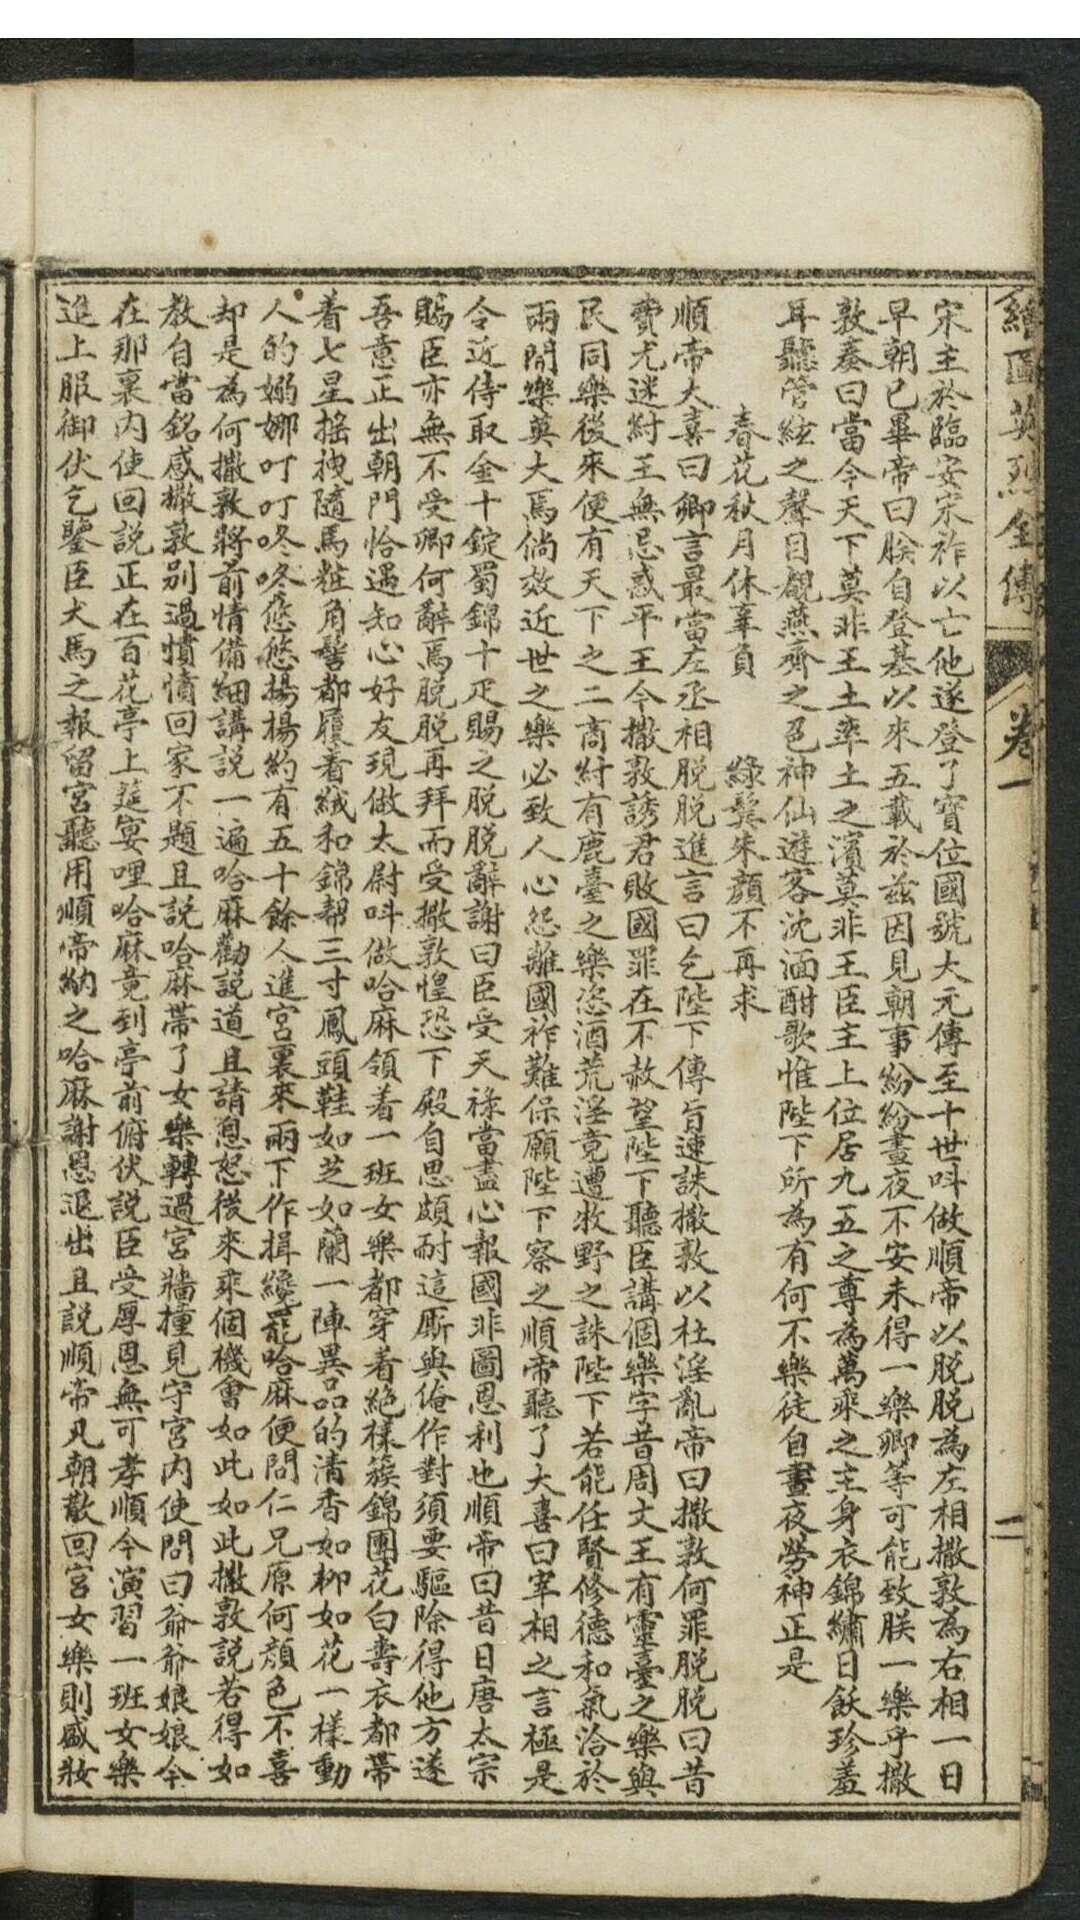 繪圖英烈全傳 卷一 二
宋主於臨安宋祚以亡他遂登了寶位國號大元傳至十世呌做順帝以脱脱為左相撒敦為右相一日
早朝已畢帝曰朕自登基以來五載於茲因見朝事紛紛晝夜不安未得一樂卿等可能致朕一樂乎撒
敦奏曰當今天下莫非王土率土之濱莫非王臣主上位居九五之尊為萬乘之主身衣錦繡日飫珍羞
耳聽管絃之聲目覩燕齊之色神仙遊客沈湎酣歌惟陛下所為有何不樂徒自晝夜勞神正是
春花秋月休辜負 綠鬢朱顏不再求
順帝大喜曰卿言最當左丞相脱脱進言曰乞陛下傳旨速誅撒敦以杜淫亂帝曰撒敦何罪脱脱曰昔
費尤迷紂王無忌惑平王今撒敦誘君敗國罪在不赦望陛下聽臣講個樂字昔周文王有靈臺之樂與
民同樂後來便有天下之二商紂有鹿臺之樂恣酒荒淫竟遭牧野之誅陛下若能任賢修德和氣洽於
兩間樂莫大焉倘效近世之樂必致人心怨離國祚難保願陛下察之順帝聽了大喜曰宰相之言極是
令近侍取金十錠蜀錦十疋賜之脱脱辭謝曰臣受天祿當盡心報國非圖恩利也順帝曰昔日唐太宗
賜臣亦無不受卿何辭焉脱脱再拜而受撒敦惶恐下殿自思頗耐這厮與俺作對須要驅除得他方遂
吾意正出朝門恰遇知心好友現做太尉呌做哈麻領着一班女樂都穿着絶樣簇錦團花白壽衣都帶
着七星搖拽隨馬粧角髻都履着絨和錦幇三寸鳳頭鞋如芝如蘭一陣異品的清香如柳如花一樣動
人的嫋娜叮叮咚咚悠悠揚揚約有五十餘人進宮裏來兩下作揖纔罷哈麻便問仁兄原何顏色不喜
却是為何撒敦將前情備細講説一遍哈麻勸説道且請息怒後來乘個機會如此如此撒敦説若得如
教自當銘感撒敦别過憤憤回家不題且説哈麻帶了女樂轉過宮牆撞見守宮內使問曰爺爺娘娘今
在那裏內使回説正在百花亭上筵宴哩哈麻竟到亭前俯伏説臣受厚恩無可孝順今演習一班女樂
進上服御伏乞鑒臣犬馬之報留宮聽用順帝納之哈麻謝恩退出且説順帝凡朝散回宮女樂則盛妝